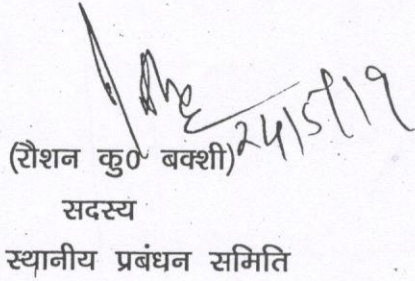 24/5/19
(रौशन कु० बक्शी)
सदस्य
स्थानीय प्रबंधन समिति